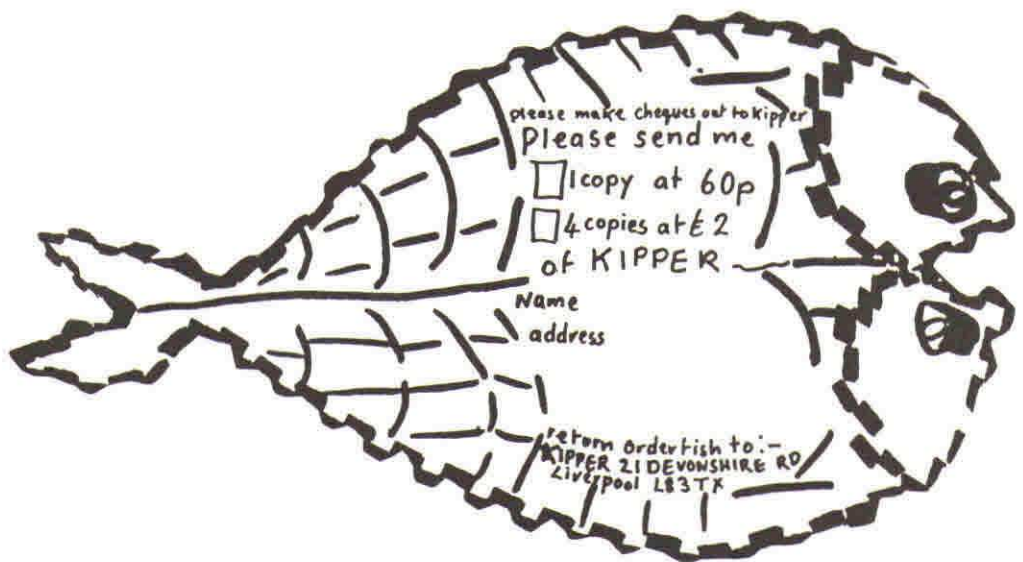 please make cheques out to Kipper
please send me
1 copy at 60p
4 copies at £2
of KIPPER
Name
address
return orderfish to:-
KIPPER 21 DEVONSHIRE RD
Liverpool L83TX